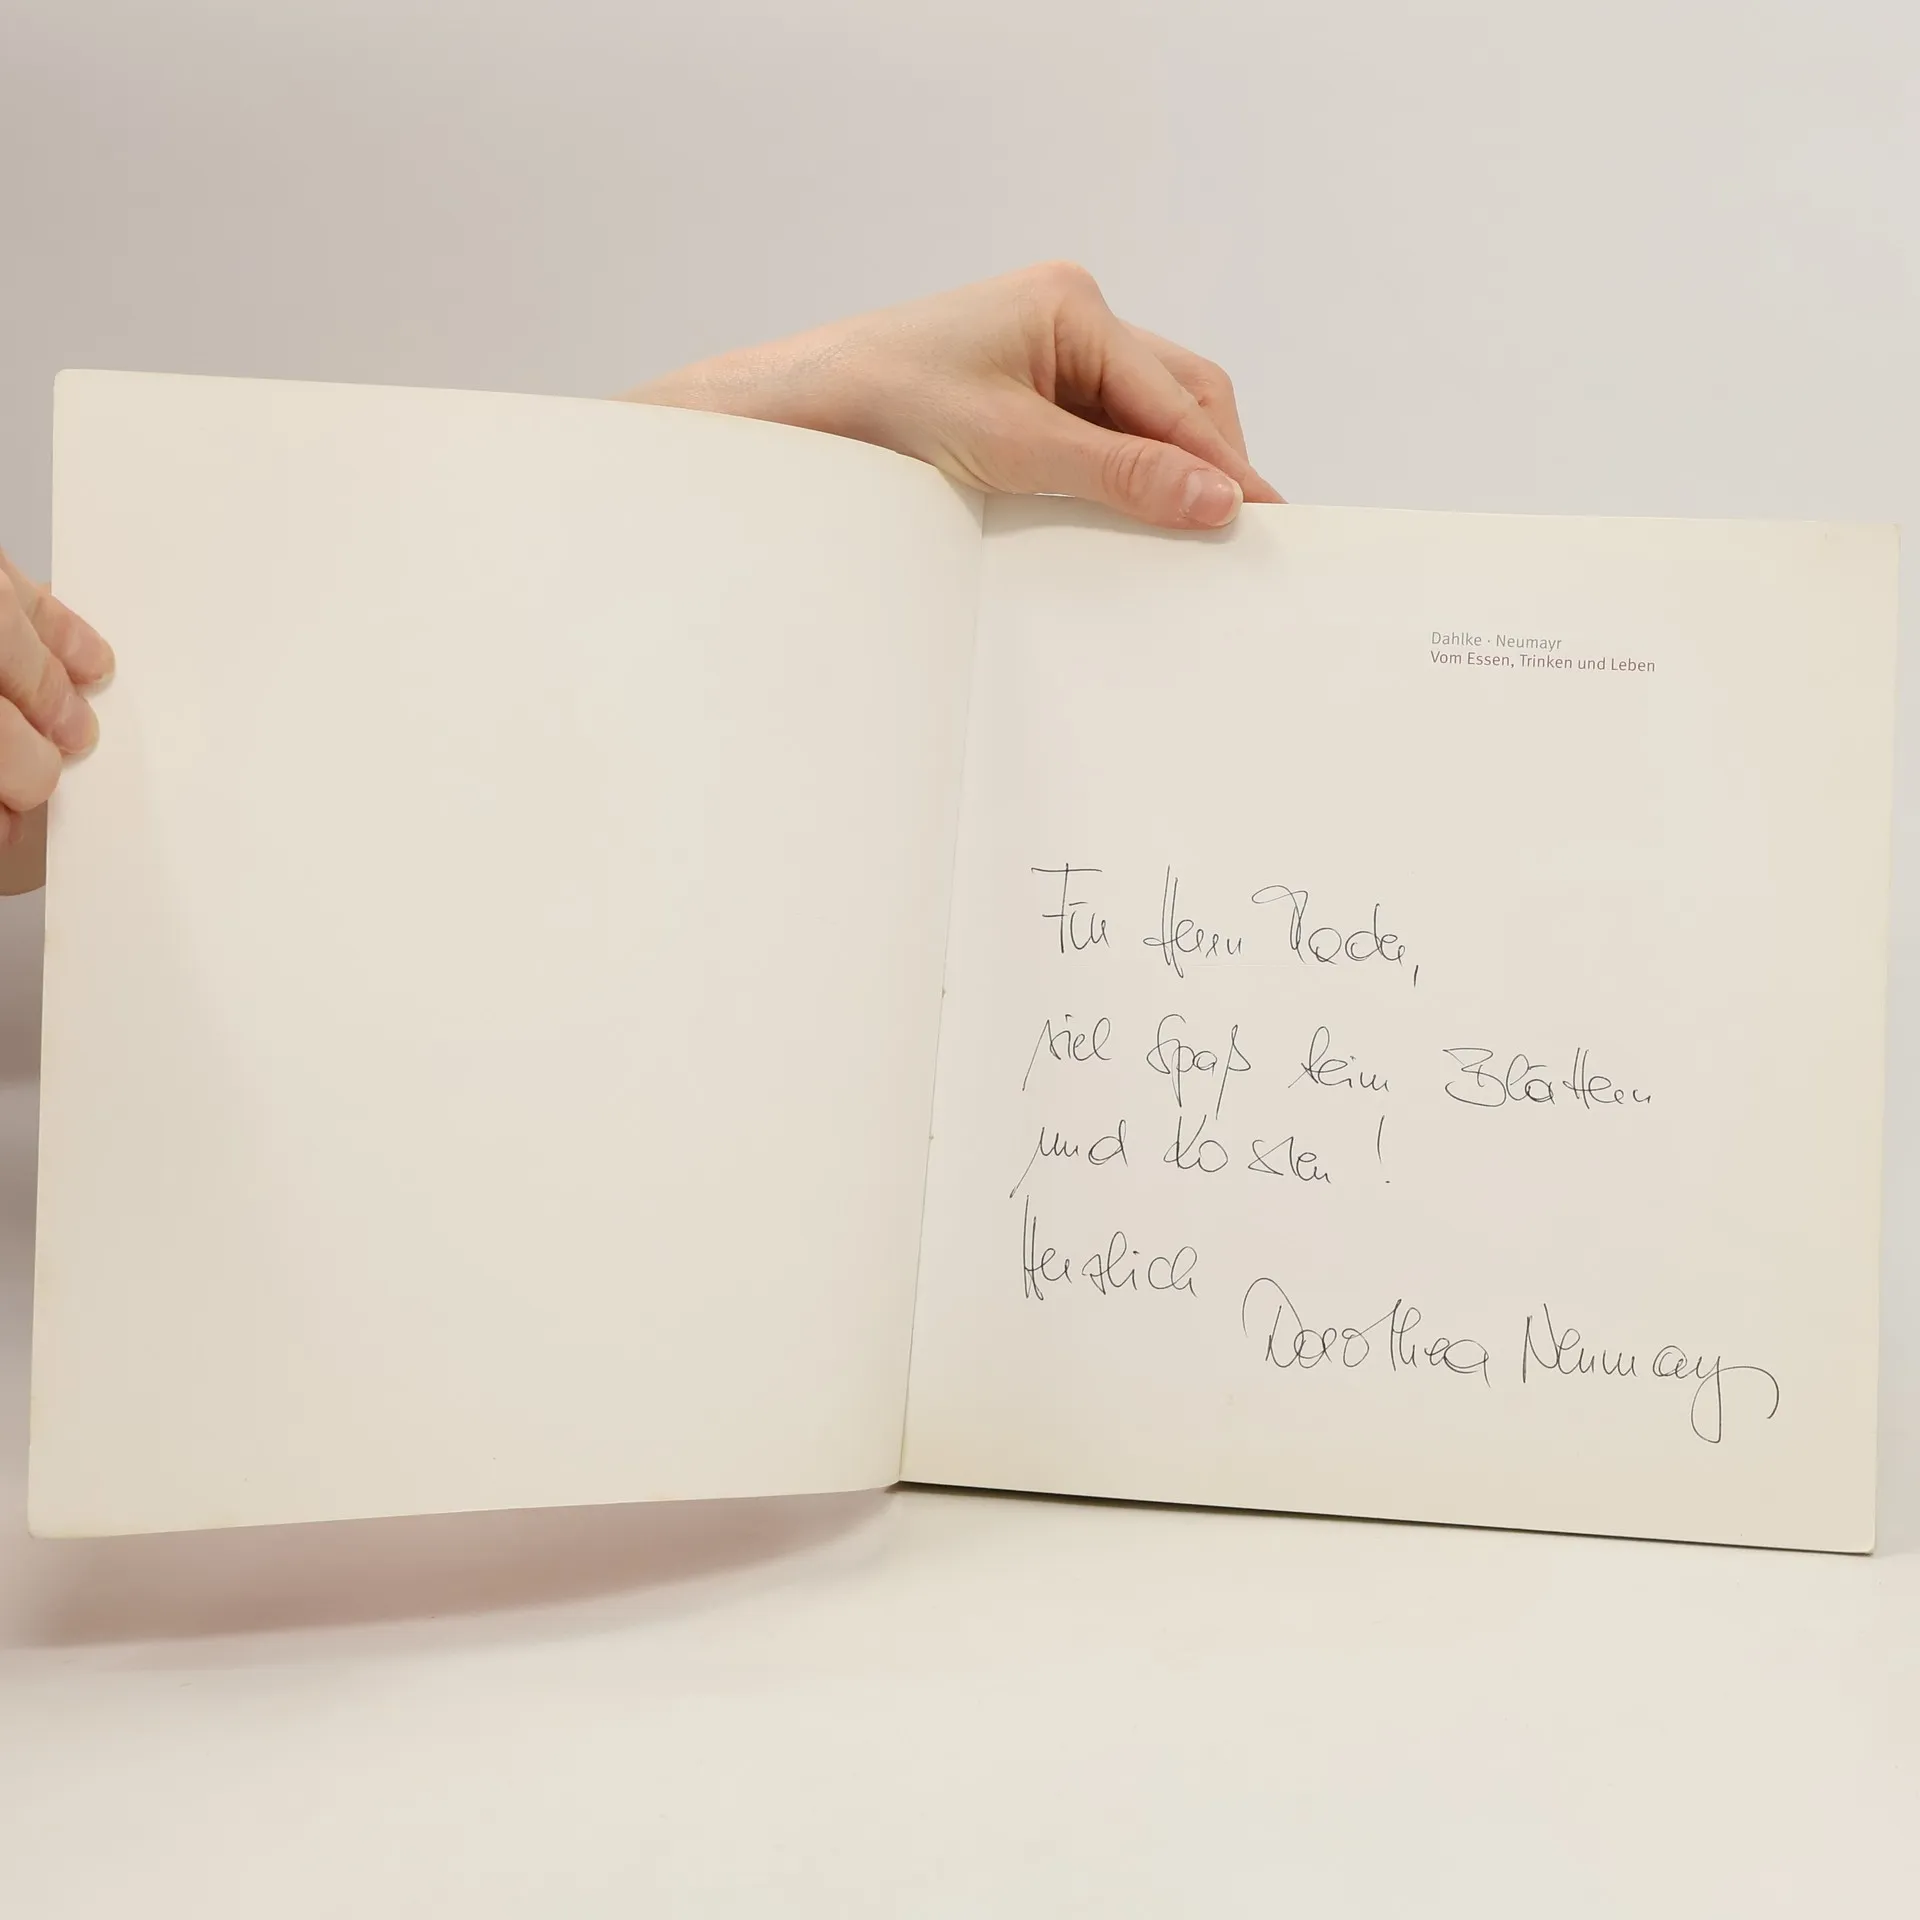 Dahlke · Neumayr
Vom Essen, Trinken und Leben
Für Herrn
viel Spaß beim Blättern
und Kosten!
Herzlich
Dorothea Neumayr